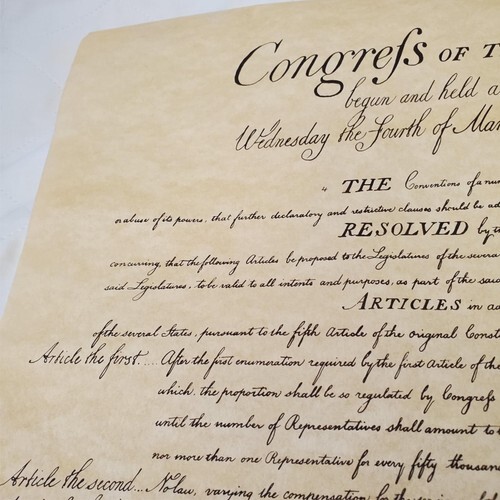 Congreſs OF T
begun and held a
Wednesday the Fourth of Mar
THE Conventions of a num
or abuse of its powers, that further declaratory and restrictive clauses should be ad
RESOLVED by t
concurring, that the following Articles be proposed to the Legislatures of the severa
said Legislatures, to be valid to all intents and purposes, as part of the said
ARTICLES in ad
of the several States, pursuant to the fifth Article of the original Const
Article the first..... After the first enumeration required by the first Article of the
which, the proportion shall be so regulated by Congreſs
until the number of Representatives shall amount to t
nor more than one Representative for every fifty thousan
Article the second... No law, varying the compensation for the